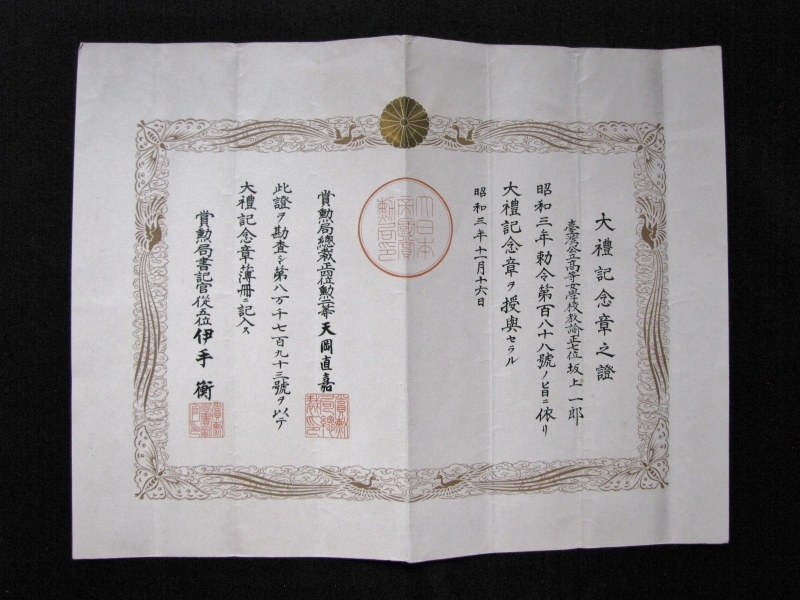 大禮記念章之證
臺灣公立高等女學校教諭正七位坂上一郎
昭和三年勅令第百八十八號ノ旨ニ依リ
大禮記念章ヲ授與セラル
昭和三年十一月十六日
大日本
帝國賞
勲局印
賞勲局總裁正四位勲二等天岡直嘉
此證ヲ勘査シ第八万千七百九十三號ヲ以テ
大禮記念章簿冊ニ記入ス
賞勲局書記官從五位伊手衡